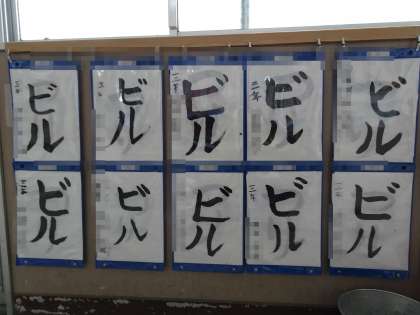 ビル
三年
ビル
ビル
三年
ビル
三年
ビル
ビル
三年
ビル
ビル
ビル
ビル
三年
ビル